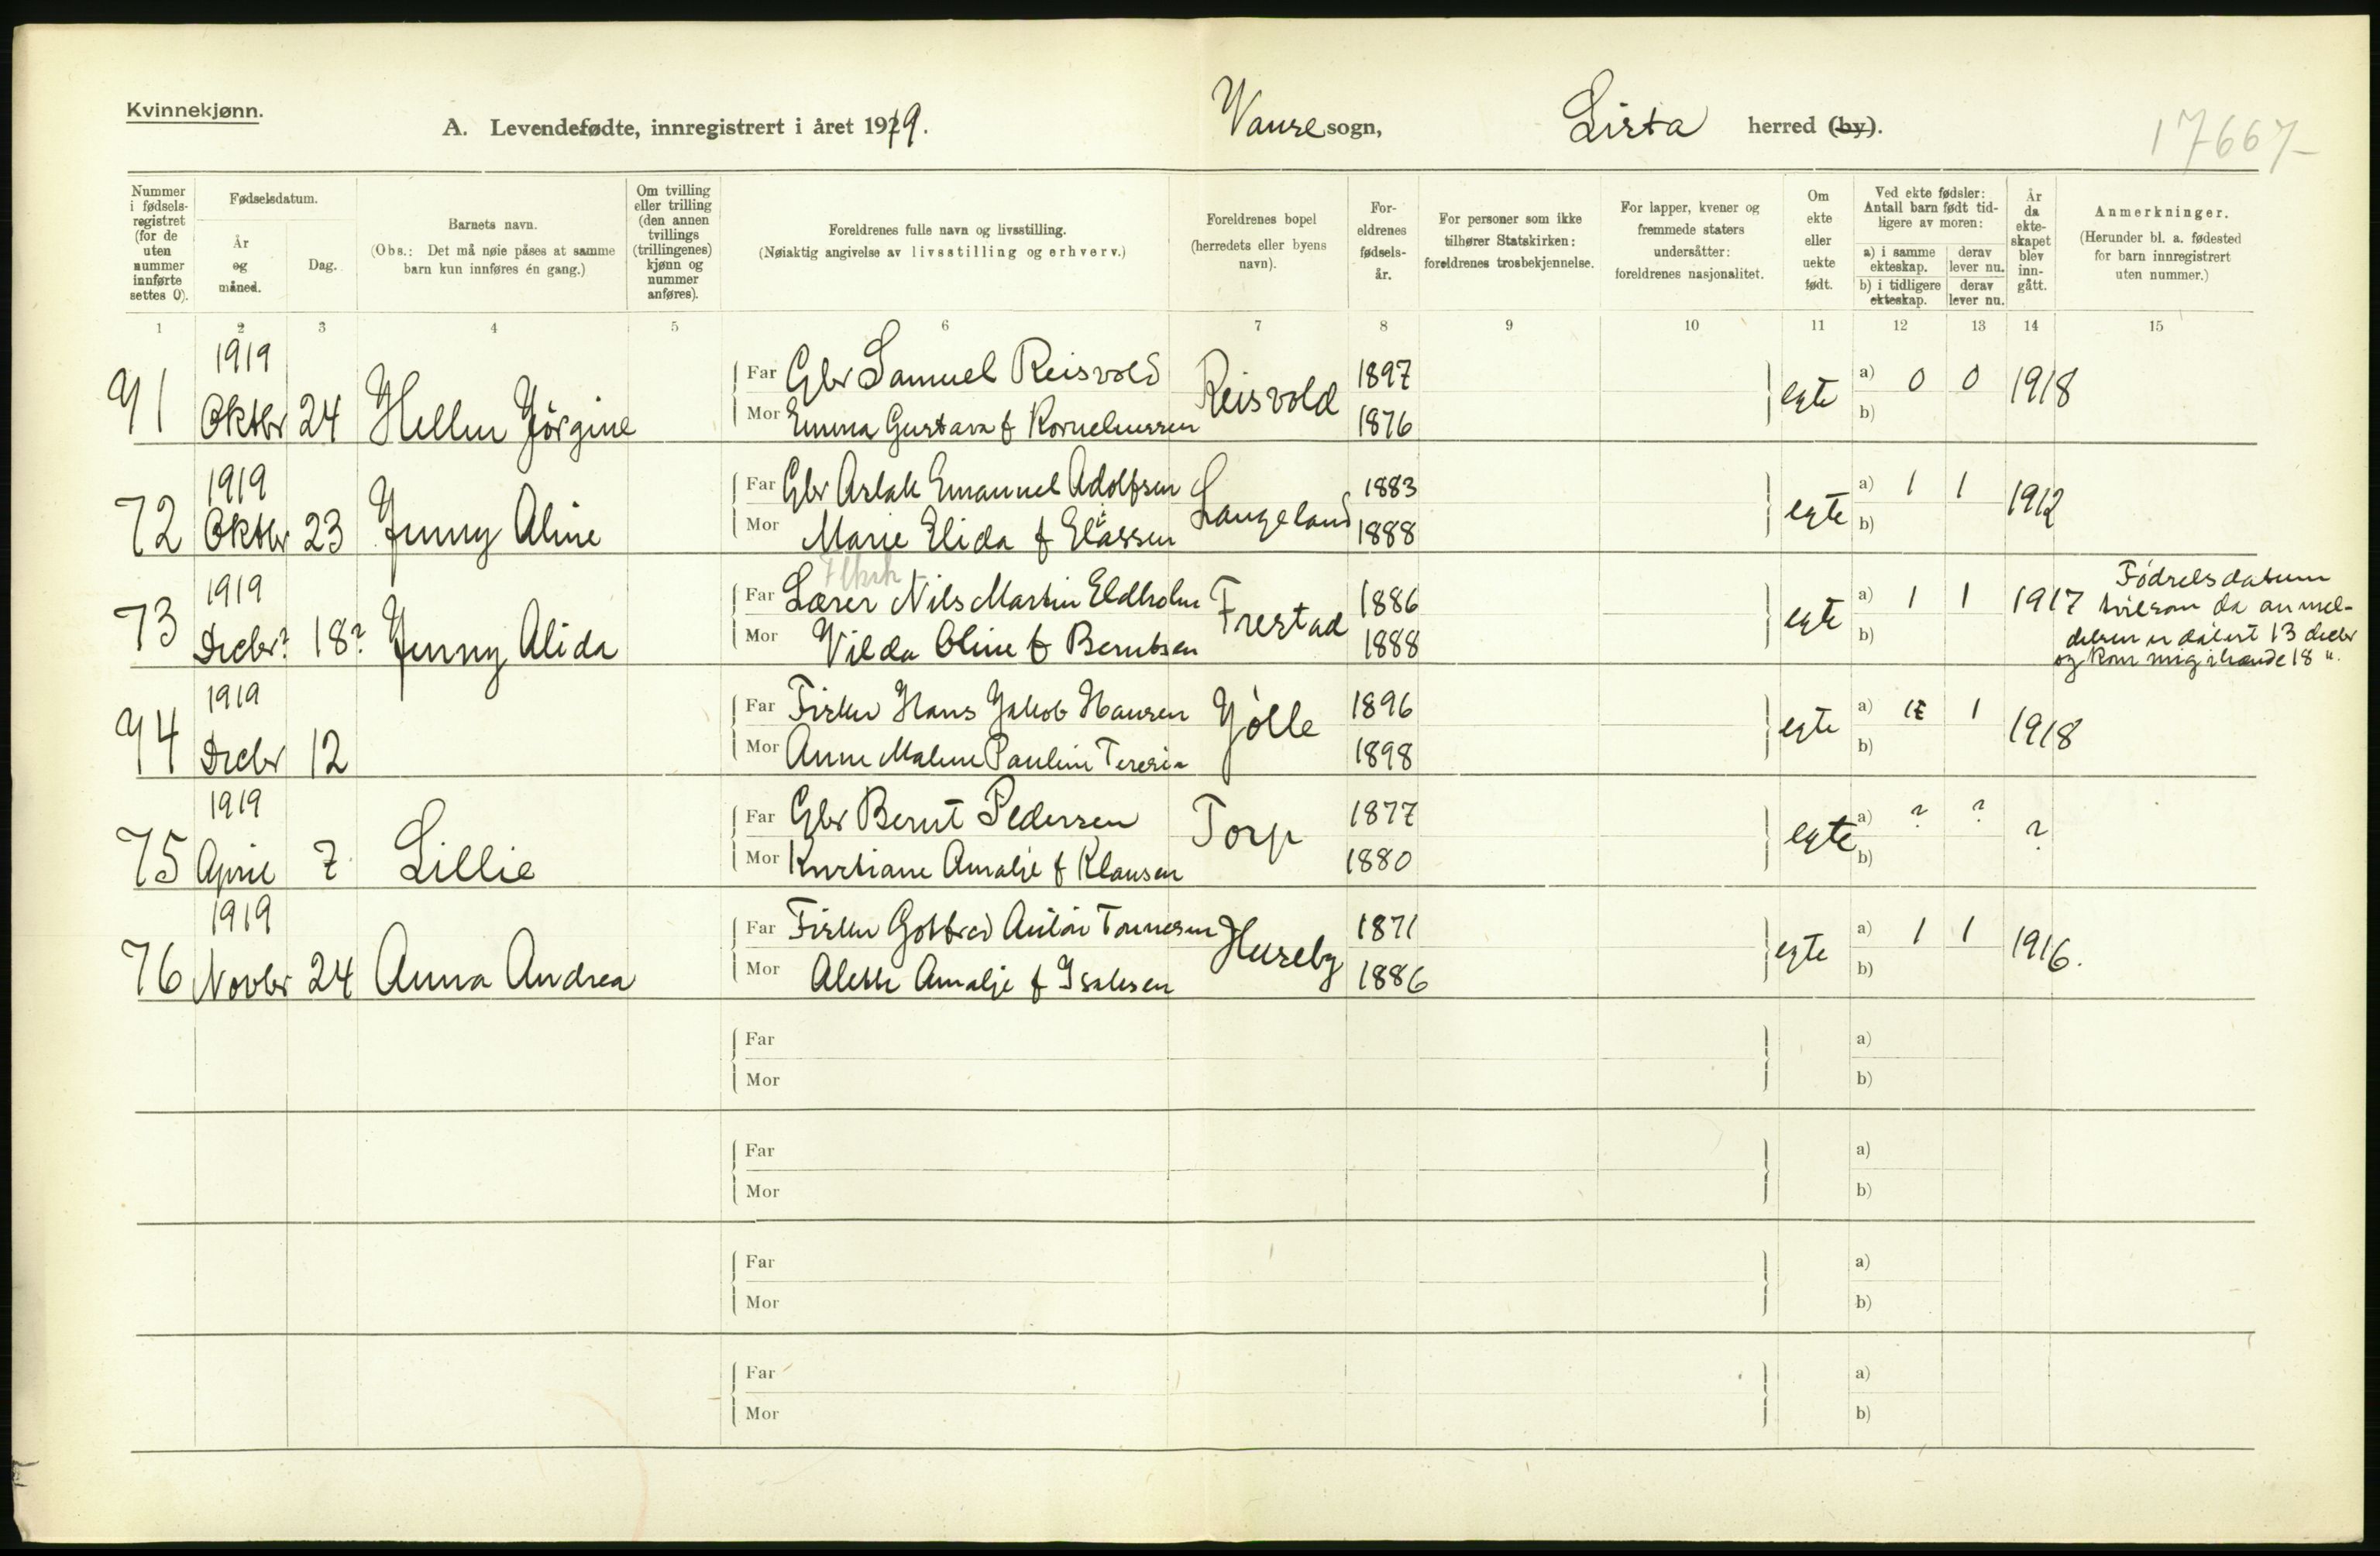 Kvinnekjønn.
A. Levendefødte, innregistrert i året 1919.
Vanse sogn,
Lista herred (by).
17667-
Nummer i fødselsregistret (for de uten nummer innførte settes 0).
Fødselsdatum.
År og måned.
Dag.
Barnets navn.
(Obs.: Det må nøie påses at samme barn kun innføres én gang.)
Om tvilling eller trilling (den annen tvillings (trillingenes) kjønn og nummer anføres).
Foreldrenes fulle navn og livsstilling.
(Nøiaktig angivelse av livsstilling og erhverv.)
Foreldrenes bopel (herredets eller byens navn).
Foreldrenes fødselsår.
For personer som ikke tilhører Statskirken: foreldrenes trosbekjennelse.
For lapper, kvener og fremmede staters undersåtter: foreldrenes nasjonalitet.
Om ekte eller uekte født.
Ved ekte fødsler: Antall barn født tidligere av moren:
a) i samme ekteskap. derav lever nu.
b) i tidligere ekteskap. derav lever nu.
År da ekteskapet blev inngått.
Anmerkninger.
(Herunder bl. a. fødested for barn innregistrert uten nummer.)
1 2 3 4 5 6 7 8 9 10 11 12 13 14 15
1919 Far Gbr Samuel Reisvold 1897 a) 0 0
71 Oktbr 24 Hellen Jörgine Mor Emma Gustava f Korneliussen Reisvold 1876 egte b) 1918
1919 Far Gbr Aslak Emanuel Adolfsen 1883 a) 1 1
72 Oktbr 23 Jenny Aline Mor Marie Elida f Eliassen Langeland 1888 egte b) 1912
1919 Far Lærer Nils Martin Eldholm 1886 a) 1 1 1917
73 Decbr? 18? Jenny Alida Mor Vilda Oline f Berntsen Frestad 1888 egte b)
Födselsdatum
tvilsom da anmel-
delsen er datert 13 decbr
og kom mig ihænde 18 ".
1919 Far Fisker Hans Jakob Hansen 1896 a) 1 1
74 Decbr 12 Mor Anne Malene Pauline Teresia Jölle 1898 egte b) 1918
1919 Far Gbr Bernt Pedersen 1877 a) ? ?
75 April 7 Lillie Mor Kristiane Amalie f Klausen Torp 1880 egte b) ?
1919 Far Fisker Gotfred Anton Tønnesen 1871 a) 1 1
76 Novbr 24 Anna Andrea Mor Alette Amalje f Isaksen Huseby 1886 egte b) 1916.
Far a)
Mor b)
Far a)
Mor b)
Far a)
Mor b)
Far a)
Mor b)